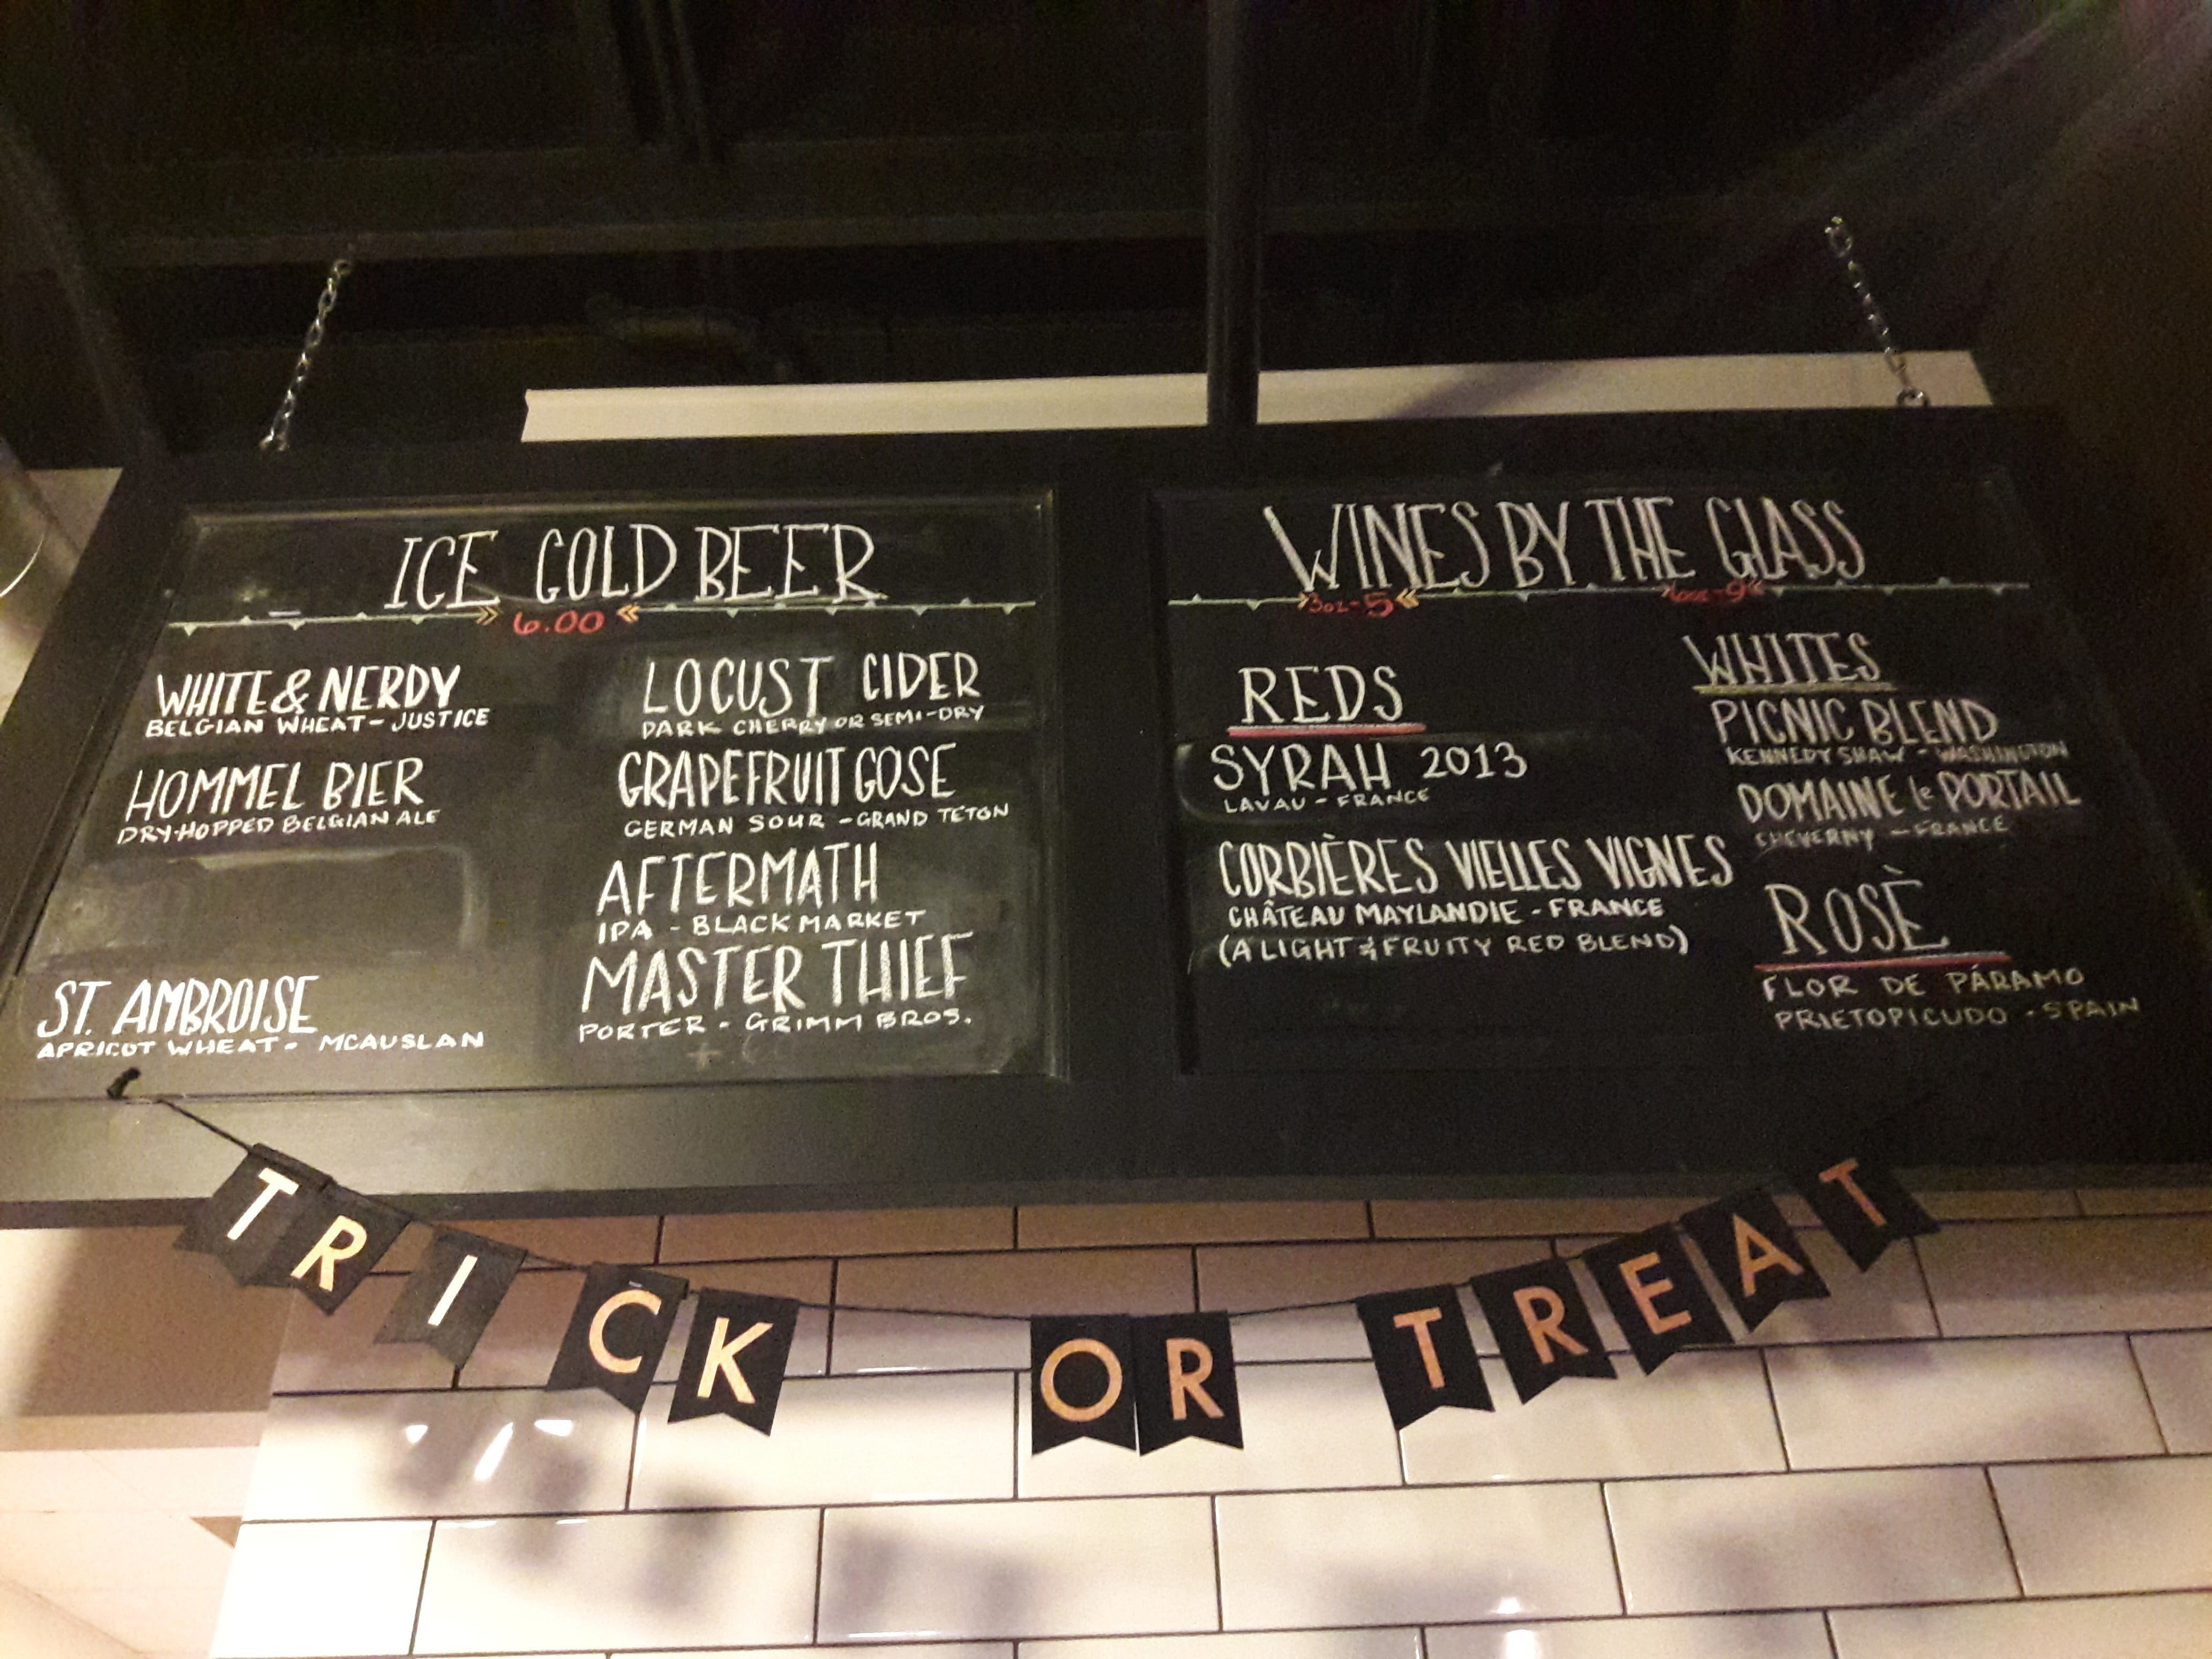 ICE COLD BEER
6.00
WHITE & NERDY
BELGIAN WHEAT - JUSTICE
HOMMEL BIER
DRY-HOPPED BELGIAN ALE
ST. AMBROISE
APRICOT WHEAT - MCAUSLAN
LOCUST CIDER
DARK CHERRY OR SEMI-DRY
GRAPEFRUIT GOSE
GERMAN SOUR - GRAND TETON
AFTERMATH
IPA - BLACK MARKET
MASTER THIEF
PORTER - GRIMM BROS.
WINES BY THE GLASS
3oz-5 6oz-9
REDS
SYRAH 2013
LAVAU - FRANCE
CORBIÈRES VIELLES VIGNES
CHÂTEAU MAYLANDIE - FRANCE
(A LIGHT & FRUITY RED BLEND)
WHITES
PICNIC BLEND
KENNEDY SHAW - WASHINGTON
DOMAINE le PORTAIL
CHEVERNY - FRANCE
ROSÈ
FLOR DE PÁRAMO
PRIETOPICUDO - SPAIN
TRICK OR TREAT